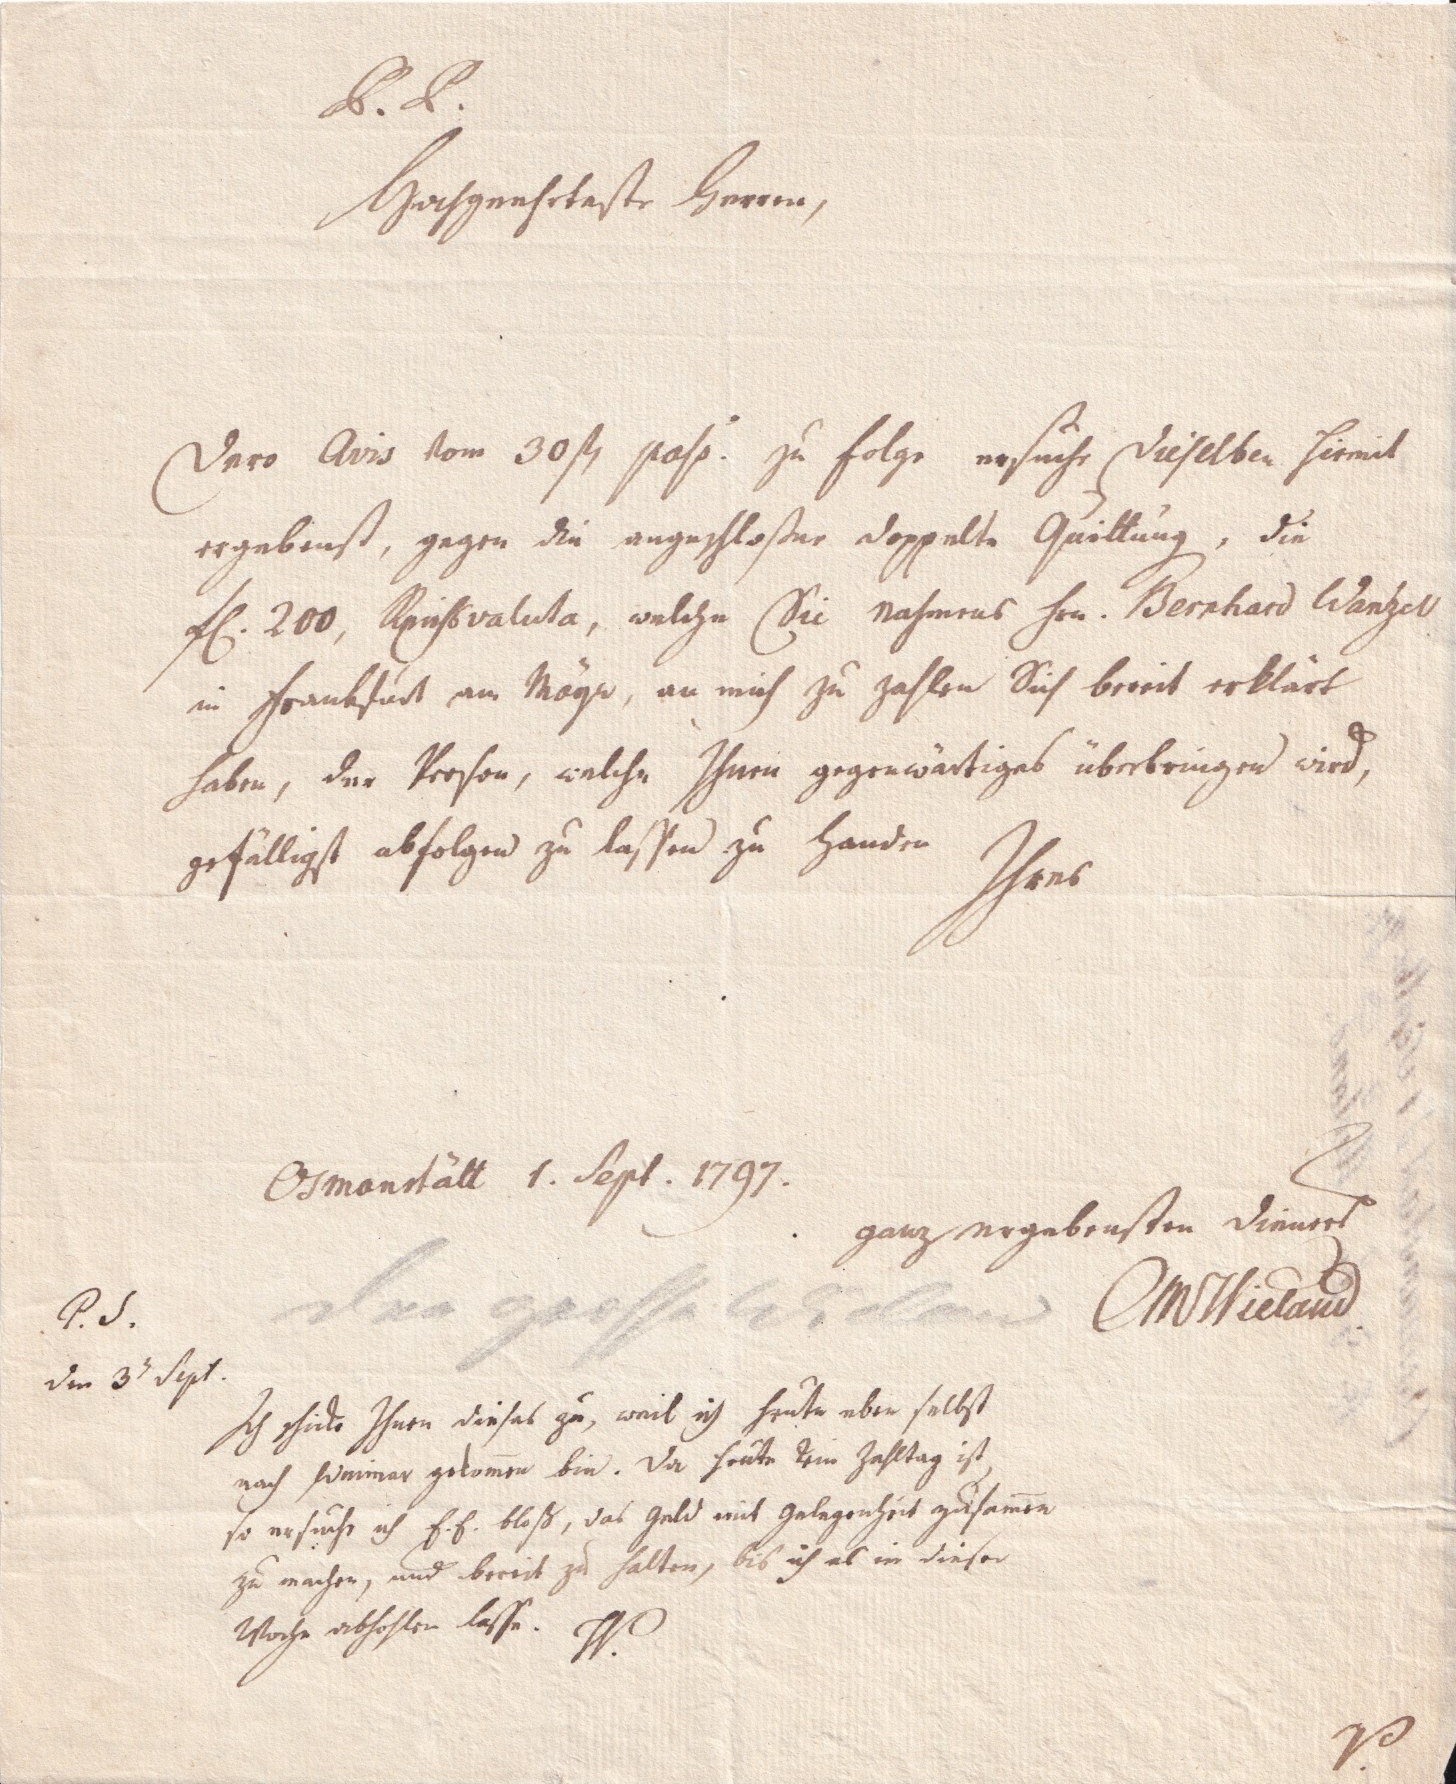 P. P.
Hochgeehrteste Herren,
Dero Avis vom 30st pass. zu folge ersuche Dieselben hiemit
ergebenst, gegen die angeschloßne doppelte Quittung, die
fl. 200, Reichsvaluta, welche Sie nahmens Hrn. Bernhard Wantzel
in Frankfurt am Mayn, an mich zu zahlen Sich bereit erklärt
haben, der Person, welche Ihnen gegenwärtiges überbringen wird,
gefälligst abfolgen zu lassen zu Handen
Ihres
Osmanstätt 1. Sept. 1797.
ganz ergebensten Dieners
CMWieland
P. S.
den 3t Sept.
Ich schicke Ihnen dieses zu, weil ich heute eben selbst
nach Weimar gekommen bin. Da heute kein Zahltag ist
so ersuche ich E. E. bloß, das Geld mit Gelegenheit zusammen
zu machen, und bereit zu halten, bis ich es in dieser
Woche abhohlen lasse. W.